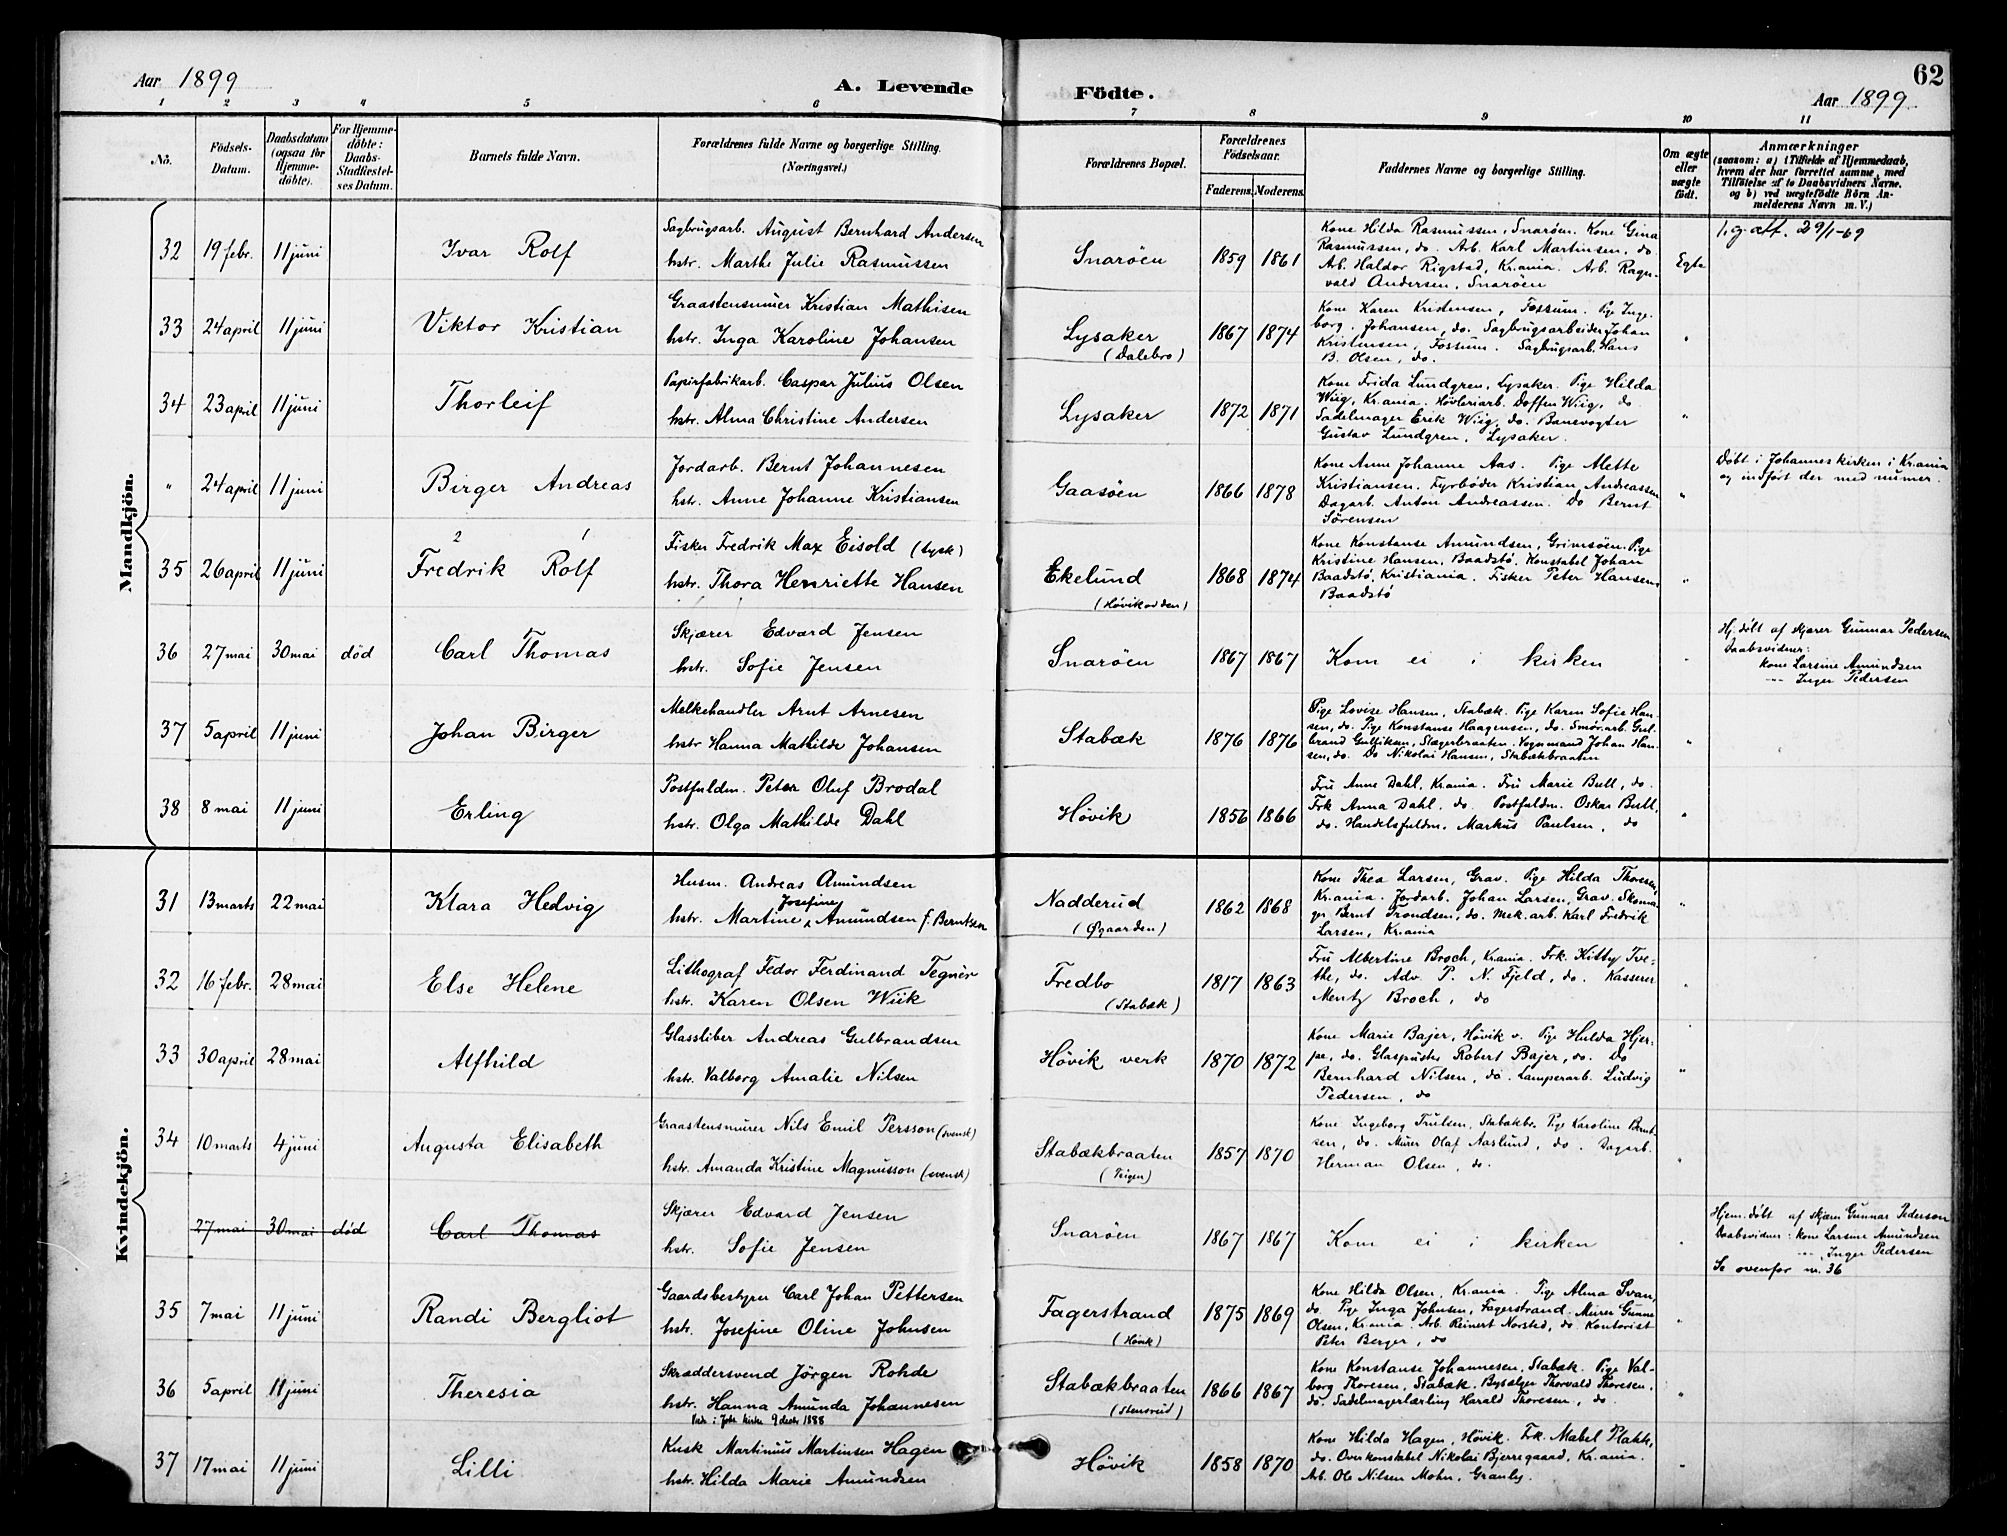 Aar 1899 A. Levende Födte. Aar 1899 62
1 2 3 4 5 6 7 8 9 10 11
No. Födsels-Datum. Daabsdatum (ogsaa for Hjemmedöbte). For Hjemmedöbte: Daabs-Stadfæstelses Datum. Barnets fulde Navn. Forældrenes fulde Navne og borgerlige Stilling. (Næringsvei.) Forældrenes Bopæl. Forældrenes Födselsaar. Faderens. Moderens. Faddernes Navne og borgerlige Stilling. Om ægte eller uægte födt. Anmærkninger (saasom: a) i Tilfælde af Hjemmedaab, hvem der har forrettet samme, med Tilföielse af to Daabsvidners Navne, og b) ved uægtefödte Börn Anmelderens Navn m. V.)
Mandkjön.
32 19 febr. 11 juni Ivar Rolf Sagbrugsarb. August Bernhard Andersen
hstr. Marthe Julie Rasmussen
Snaröen 1859 1861
Kone Hilda Rasmussen, Snaröen. Kone Gina
Rasmussen, do. Arb. Karl Martinsen, do.
Arb. Haldor Rigstad, Kr.ania. Arb. Ragn-
vald Andersen, Snaröen
Egte
att. 29/1-69
33 24 april 11 juni Viktor Kristian Graastensmurer Kristian Mathisen
hstr. Inga Karoline Johansen
Lysaker
(Dalebro)
1867 1874
Kone Karen Kristensen, Fossum. Pige Inge-
borg Johansen, do. Sagbrugsarbeider Johan
Kristensen, Fossum. Sagbrugsarb. Hans
B. Olsen, do.
"
34 23 april 11 juni Thorleif Papirfabrikarb. Caspar Julius Olsen
hstr. Alma Christine Andersen
Lysaker 1872 1871
Kone Frida Lundgren, Lysaker. Pige Hilda
Wiig, Kr.ania. Høvleriarb. Doffen Wiig, do.
Sadelmager Erik Wiig, do. Banevogter
Gustav Lundgren, Lysaker.
"
" 24 april 11 juni Birger Andreas Jordarb. Bernt Johannesen
hstr. Anne Johanne Kristiansen
Gaasöen 1866 1878
Kone Anne Johanne Aas. Pige Mette
Kristiansen. Fyrbøder Kristian Andreassen
Dagarb. Anton Andreassen. Do Bernt
Sörensen
"
Döbt i Johanneskirken i Kr.ania
og indfört der med numer.
2 1
35 26 april 11 juni Fredrik Rolf Fisker Fredrik Max Eisold (tysk)
hstr. Thora Henriette Hansen
Ekelund
(Høvikodden)
1868 1874
Kone Konstanse Amundsen, Grimsöen. Pige
Kristine Hansen, Baadstø. Konstabel Johan
Baadstø, Kristiania. Fisker Peter Hansen,
Baadstø
"
36 27 mai 30 mai död Carl Thomas Skjærer Edvard Jensen
hstr. Sofie Jensen
Snaröen 1867 1867 Kom ei i kirken
"
Hj. döbt af skjærer Gunnar Pedersen
Daabsvidner:
Kone Larsine Amundsen
--- Inger Pedersen
37 5 april 11 juni Johan Birger Melkehandler Arnt Arnesen
hstr Hanna Mathilde Johansen
Stabæk 1876 1876
Pige Lovise Hansen, Stabæk. Pige Karen Sofie Han-
sen, do. Pige Konstanse Haagensen, do. Smörarb. Gul-
brand Gulliksen, Vognmand Johan Han-
sen, do. Do Nikolai Hansen, Stabækbraaten
"
38 8 mai 11 juni Erling Postfuldm. Peter Oluf Brodal
hstr. Olga Mathilde Dahl
Hövik 1856 1866
Fru Anne Dahl, Kr.ania. Fru Marie Bull, do.
Frk Anna Dahl, do. Postfuldm. Oskar Bull,
do. Handelsfuldm. Markus Paulsen, do
"
Kvindekjön.
31 13 marts 22 mai Klara Hedvig Husm. Andreas Amundsen
Josefine
hstr. Martine Amundsen f. Berntsen
Nadderud
(Øgaarden)
1862 1868
Kone Thea Larsen, Grav. Pige Hilda Thoresen,
Kr.ania. Jordarb. Johan Larsen, Grav. Skoma-
ger Bernt Trondsen, do. Mek. arb. Karl Fredrik
Larsen, Kr.ania
"
32 16 febr. 28 mai Else Helene Lithograf Fedor Ferdinand Tegnèr
hstr. Karen Olsen Wiik
Fredbo
(Stabæk)
1817 1863
Fru Albertine Broch, Kr.ania. Frk. Kitty Tve-
the, do. Adv. P. N. Fjeld, do. Kasserer
Mentz Broch, do
"
33 30 april 28 mai Alfhild Glassliber Andreas Gulbrandsen
hstr. Valborg Amalie Nilsen
Hövik verk 1870 1872
Kone Marie Bajer, Hövik v. Pige Hulda Hjer-
pe, do. Glaspuster Robert Bajer, do. Do
Bernhard Nilsen, do. Lamperarb. Ludvig
Pedersen, do
"
34 10 marts 4 juni Augusta Elisabeth Graastensmurer Nils Emil Persson (svensk)
hstr. Amanda Kristine Magnusson (svensk)
Stabækbraaten
(Teigen)
1857 1870
Kone Ingeborg Trulsen, Stabækbr. Pige Karoline Bernt-
sen, do. Murer Olaf Aaslund, do. Dagarb.
Herman Olsen, do.
"
27 mai 30 mai död Carl Thomas Skjærer Edvard Jensen
hstr. Sofie Jensen
Snaröen 1867 1867 Kom ei i kirken
"
Hjem.döbt af skjærer Gunnar Pederson
Daabsvidner: Kone Larsine Amundsen
--- Inger Pedersen
Se ovenfor nr. 36
35 7 mai 11 juni Randi Bergliot Gaardsbestyrer Carl Johan Pettersen
hstr. Josefine Oline Johnsen
Fagerstrand
(Hövik)
1875 1869
Kone Hilda Olsen, Kr.ania. Pige Alma Svan,
do. Pige Inga Johnsen, Fagerstrand. Murer Gunne
Olsen, Kr.ania. Arb. Reinert Norsted, do. Kontorist
Peter Berger, do
"
36 5 april 11 juni Theresia Skræddersvend Jörgen Rohde
hstr. Hanna Amunda Johannesen
Viede i Joh. kirke 9 decbr 1888
Stabækbraaten
(Stensrud)
1866 1867
Kone Konstanse Johannesen, Stabæk. Pige Val-
borg Thoresen, Stabæk. Thorvald Thoresen,
do. Sadelmagerlærling Harald Thoresen, do.
"
37 17 mai 11 juni Lilli Kusk Martinius Martinsen Hagen
hstr. Hilda Marie Amundsen
Hövik 1858 1870
Kone Hilda Hagen, Hövik. Frk. Mabel Plakk,
do. Overkonstabel Nikolai Bjerregaard, Kr.ania.
Arb. Ole Nilsen Mohn, Granly.
"